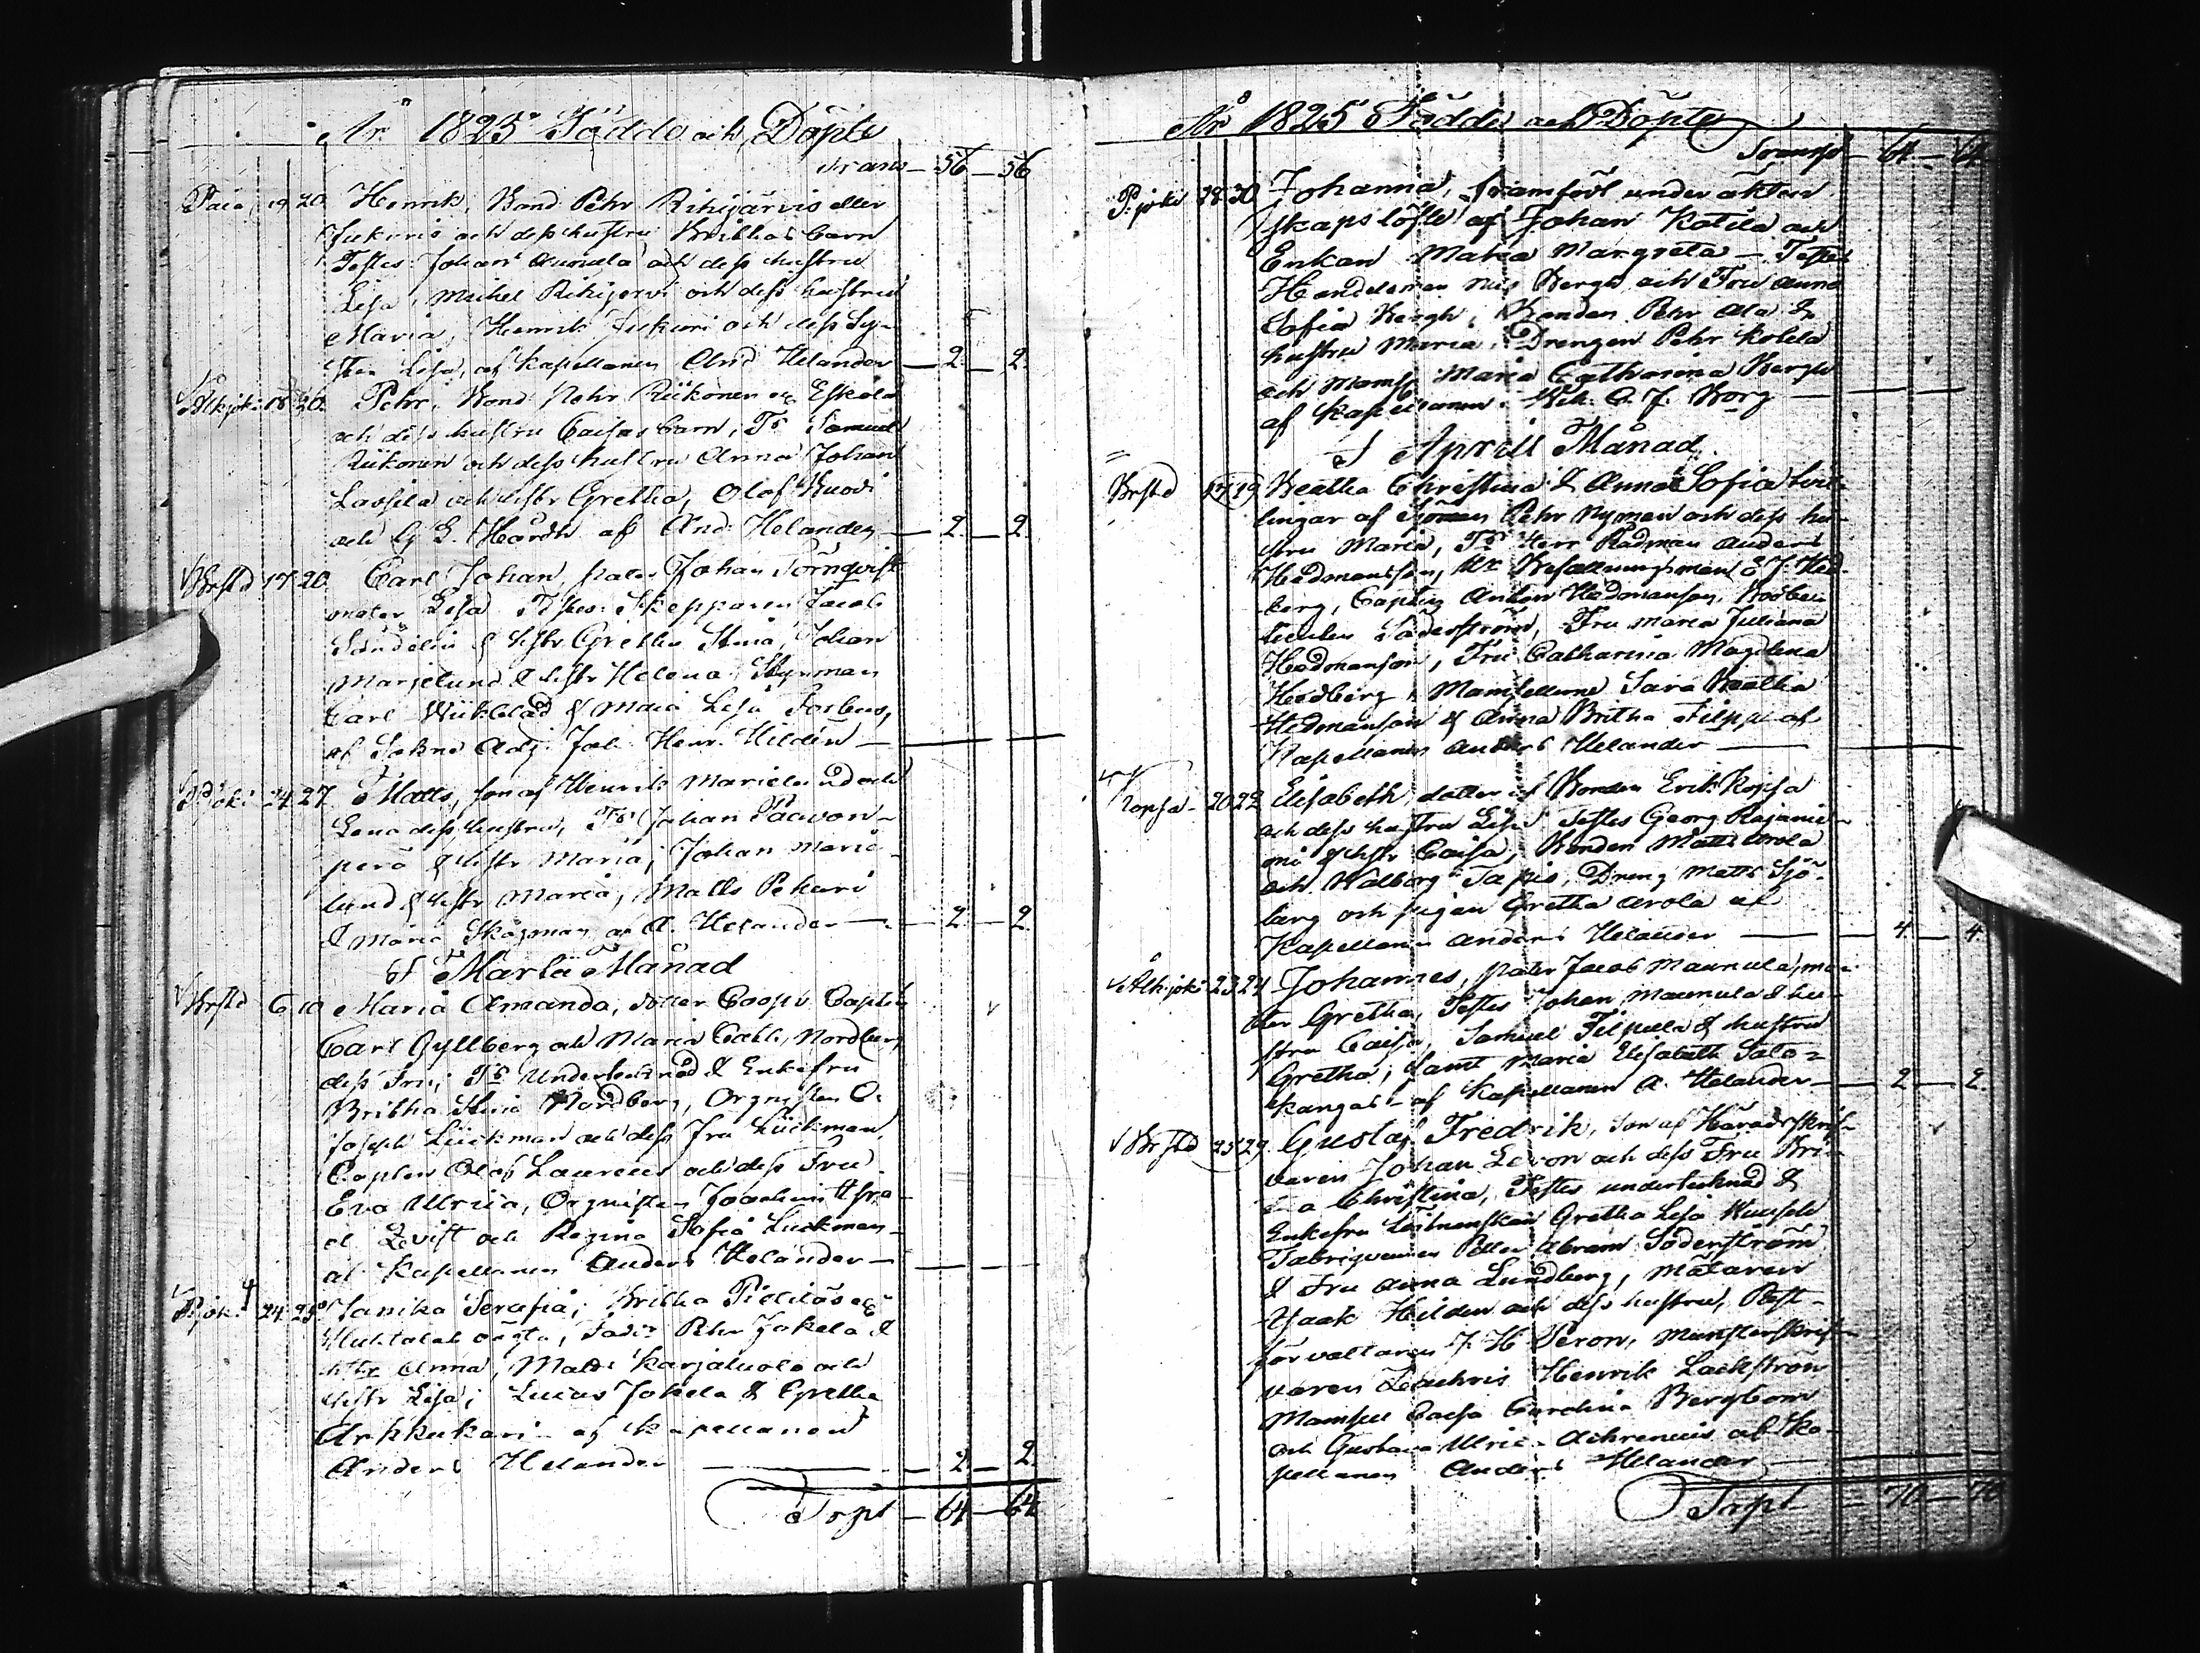 År 1825 Födde och Döpte
Trans — 56 — 56
Paia 19 20 Henrik, Bond. Pehr Rihijärvis eller
Jukuris och dess hustru Brithas barn
Testes Johan Annala och dess hustru
Lisa, Michel Rihijervi och dess hustru
Maria, Henrik Jukuri och dess Sy-
ster Lisa, af Kapellanen And. Helander — 2 — 2
Pelkjoki 18 20 Pehr, Bond. Pehr Riikonen
och dess hustru Caisas barn, Ts Samuel
Riikonen och dess hustru Anna Johan
Lassila och hstr Gretha, Olof
och G. Hårdh af And. Helander — 2 — 2
Brstd 17 20 Carl Johan, pater Johan Törnqvist
mater Lisa Testes Skepparen Jacob
Sandelin & hstr Gretha Stina, Johan
Marjelund & hstr Helena, Styrman
Carl Wiiklad & Maria Lisa Forbus,
af Sokne Adj. Joh. Henr. Hildén —
Pjoki 24 27 Matts, son af Henrik Marielund och
Lena dess hustru, Ts Johan Paavon-
perä & hstr Maria, Johan Marie-
lund & hstr Maria, Matts Pehuri
& Maria Skogman af A. Helander — 2 — 2
I Martii Månad
Brstd 6 10 Maria Amanda, dotter Coopv. Capten
Carl Gyllberg och Maria Cath. Nordberg
dess Fru; Ts Undertecknad & Enkefru
Britha Stina Nordberg, Orgnisten C.
Joseph Lückman och dess fru Lückman,
Capten Olof Laurens och dess Fru
Eva Ulrica, Orgnisten Joachim
och Regina Sofia Luckman
af Kapellanen Anders Helander —
Pjoki 24 25 Janika Serafia, Britha
oägta, Fadd. Pehr Jokela &
hstr Anna, Matts Karjaluoto och
hstr Lisa; Lucas Jokela & Gretha
Arkkukari af Kapellanen
Anders Helander — 2 — 2
Trpt — 64 — 64
År 1825 Födde och Döpte
Transp — 64 — 64
Pjoki 28 30 Johanna, framfödt under äkten
skapslöfte af Johan Kotila och
Enkan Maria Margreta — Testes
Handelsman Nils Bergh och Fru Anna
Sofia Bergh, Bonden Pehr Ala &
hustru Maria, Drengen Pehr Kotila
och Mamss. Maria Catharina Bergh
af Kapellanen C. J. Borg —
I Aprill Månad
Brstd 17 19 Beatha Christina & Anna Sofia tvil-
lingar af Sjöman Pehr Nyman och dess hu-
stru Maria, Ts Herr Rådman Anders
Hedmansson, Hr Befallningsman E. J. Hed-
berg, Capten Anton Hedmanson,
Söderström, Fru Maria Juliana
Hedmanson, Fru Catharina Magdlena
Hedberg, Mamsellerne Sara Beatha
Hedmanson & Anna Britha Filppu af
Kapellanen Anders Helander —
Kopsa 20 22 Elisabeth, dotter af Bonden Erik Kopsa
och dess hustru Lisa Testes Georg Rajanie-
mi & hstr Caisa, Bonden Matts Arola
och Walborg Tapis, Dreng Matts Sjö-
berg och pigan Gretha Arola af
Kapellanen Anders Helander — 4 — 4
Pelkjoki 23 24 Johannes, pater Jacob Maunula, ma-
ter Gretha, Testes Johan Maunula & hu-
stru Caisa, Samuel Filpula & hustru
Gretha, samt Maria Elisabeth Salo-
kangas af Kapellanen A. Helander — 2 — 2
Brstd 25 29 Gustaf Fredrik, son af Häradsskrif-
varen Johan Levon och dess Fru Bri-
ta Christina, Testes undertecknad &
Enkefru Gretha Lisa
Fabriqueuren Petter Abram Söderström
& Fru Anna Lundberg, Målaren
Isaak Hilden och dess hustru, Post-
förvaltaren J. H. Peron, Munsterskrif-
varen Zachris Henrik Lackström
Mamsell Caisa Carolina Bergbom
och Gustava Ulrica Achrenius af Ka-
pellanen Anders Helander —
Trpt — 70 — 70